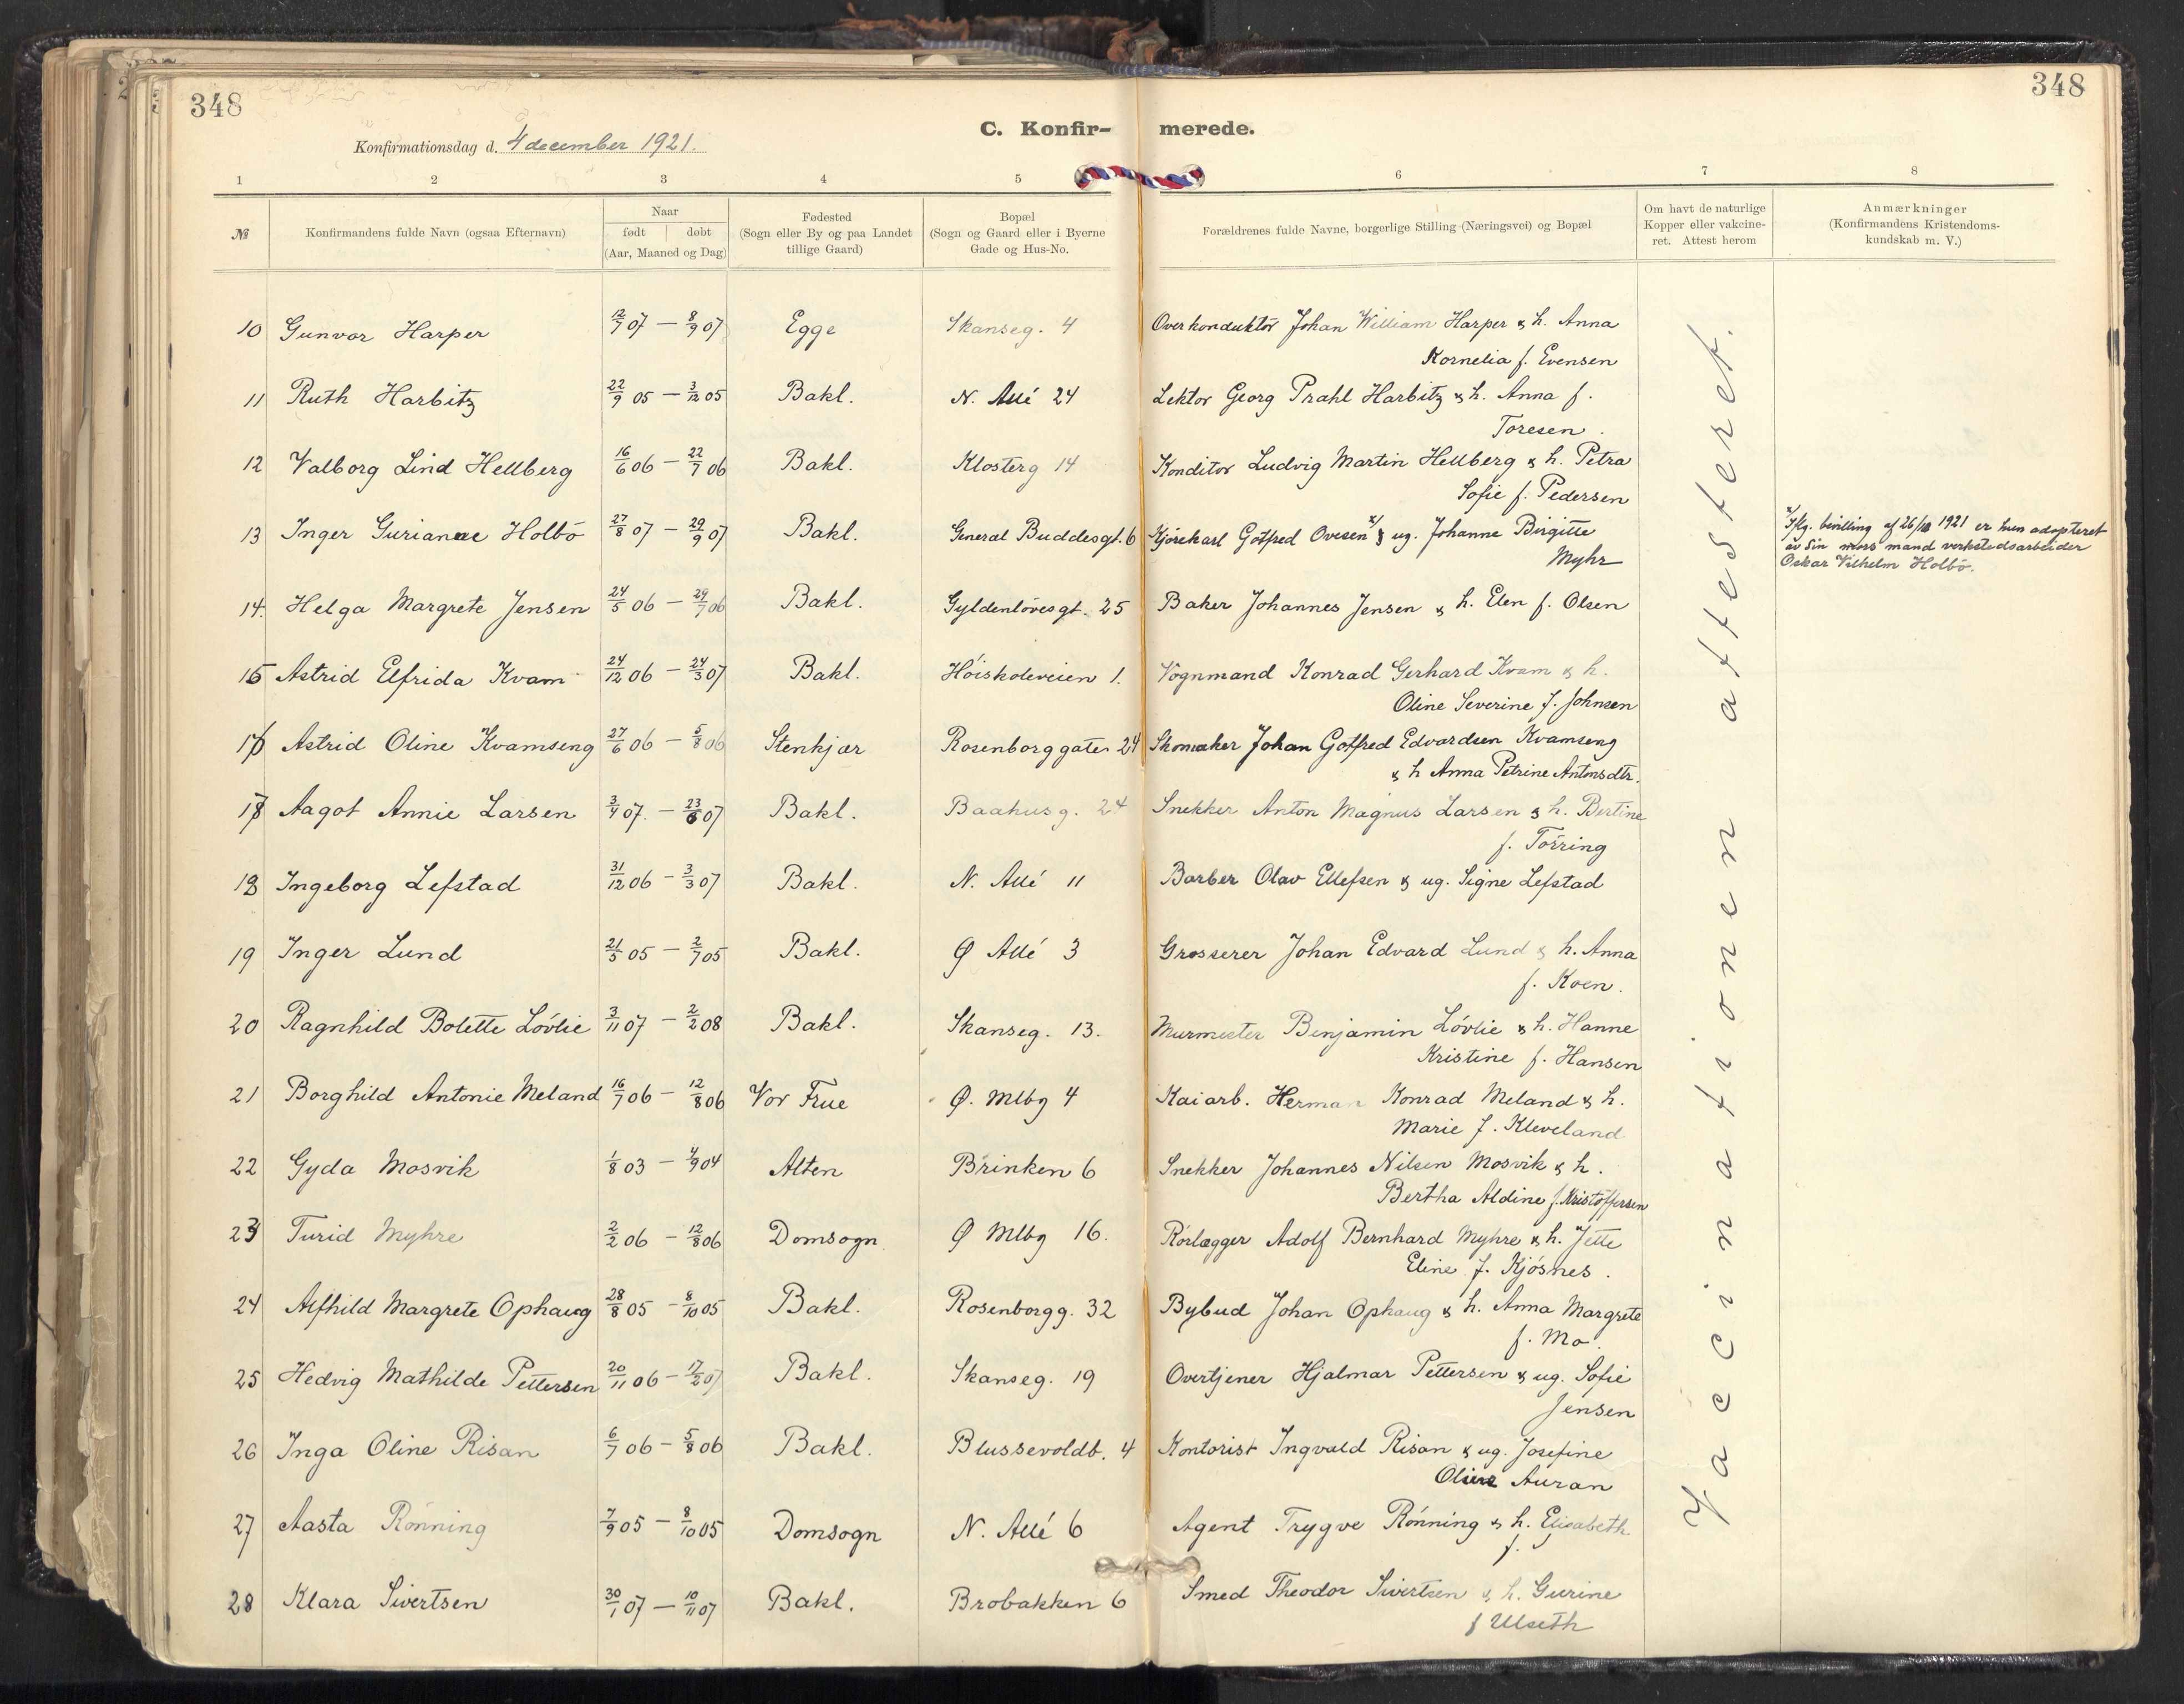 348
348
C. Konfir- merede.
Konfirmationsdag d. 4 december 1921.
1 2 3 4 5 6 7 8
№ Konfirmandens fulde Navn (ogsaa Efternavn) Naar født døbt (Aar, Maaned og Dag) Fødested (Sogn eller By og paa Landet tillige Gaard) Bopæl (Sogn og Gaard eller i Byerne Gade og Hus-No. Forældrenes fulde Navne, borgerlige Stilling (Næringsvei) og Bopæl Om havt de naturlige Kopper eller vakcineret. Attest herom Anmærkninger (Konfirmandens Kristendomskundskab m. V.)
10 Gunvor Harper 12/7 07 — 8/9 07 Egge Skanseg. 4 Overkonduktör Johan William Harper & h. Anna
Kornelia f. Evensen
11 Ruth Harbitz 22/9 05 — 3/12 05 Bakl. N. Allé 24 Lektor Georg Prahl Harbitz & h. Anna f.
Toresen.
12 Valborg Lind Hellberg 16/6 06 — 22/7 06 Bakl. Klosterg 14 Konditor Ludvig Martin Hellberg & h. Petra
Sofie f. Pedersen
13 Inger Gurianne Holbö 27/8 07 — 29/9 07 Bakl. General Buddesgt. 6 Kjörekarl Gotfred Ovesen x/ & ug. Johanne Birgitte
Myhr
x/ Iflg. bevilling af 26/ 1921 er hun adopteret
av sin mors mand verkstedsarbeider
Oskar Vilhelm Holbö.
14. Helga Margrete Jensen 24/5 06 — 29/7 06 Bakl. Gyldenlövesgt. 25 Baker Johannes Jensen & h. Elen f. Olsen
15 Astrid Elfrida Kvam 24/12 06 — 24/3 07 Bakl. Höiskoleveien 1. Vognmand Konrad Gerhard Kvam & h.
Oline Severine f. Johnsen
16 Astrid Oline Kvamseng 27/6 06 — 5/8 06 Stenkjær Rosenborggaten 24 Skomaker Johan Gotfred Edvardsen Kvamseng
& h Anna Petrine Antonsdtr.
17 Aagot Annie Larsen 3/4 07. — 23/6 07 Bakl. Baahusg. 24 Snekker Anton Magnus Larsen & h. Bertine
f. Törring
18 Ingeborg Lefstad 31/12 06 — 3/3 07 Bakl. N. Allé 11 Barber Olav Ellefsen & ug. Signe Lefstad
19 Inger Lund 21/5 05 — 2/7 05 Bakl. Ø Allé 3 Grosserer Johan Edvard Lund & h. Anna
f. Koen.
20 Ragnhild Bolette Lövlie 3/11 07 — 2/2 08 Bakl. Skanseg. 13. Murmester Benjamin Lövlie & h. Hanne
Kristine f. Hansen
21 Borghild Antonie Meland 16/7 06 — 12/8 06 Vor Frue Ø. Mlbg 4 Kaiarb. Herman Konrad Meland & h.
Marie f. Kleveland
22 Gyda Mosvik 1/8 03 — 4/9 04 Alten Brinken 6 Snekker Johannes Nilsen Mosvik & h.
Bertha Aldine f. Kristoffersen
23 Turid Myhre 2/2 06 — 12/8 06 Domsogn Ø Mlbg 16. Rörlægger Adolf Bernhard Myhre & h. Jette
Eline f. Kjösnes.
24 Alfhild Margrete Ophaug 28/8 05 — 8/10 05 Bakl. Rosenborgg. 32 Bybud Johan Ophaug & h. Anna Margrete
f. Mo.
25 Hedvig Mathilde Pettersen 20/11 06 — 17/2 07 Bakl. Skanseg. 19 Overtjener Hjalmar Pettersen & ug. Sofie
Jensen
26 Inga Oline Risan 6/7 06 — 5/8 06 Bakl. Blussevoldb. 4 Kontorist Ingvald Risan & ug. Josefine
Oline Auran
27 Aasta Rönning 7/9 05 — 8/10 05 Domsogn N. Allé 6 Agent Trygve Rönning & h. Elisabeth
f.
28 Klara Sivertsen 30/1 07 — 10/11 07 Bakl. Brobakken 6 Smed Theodor Sivertsen & h. Gurine
f Ulseth
Vaccinationen attesteret.